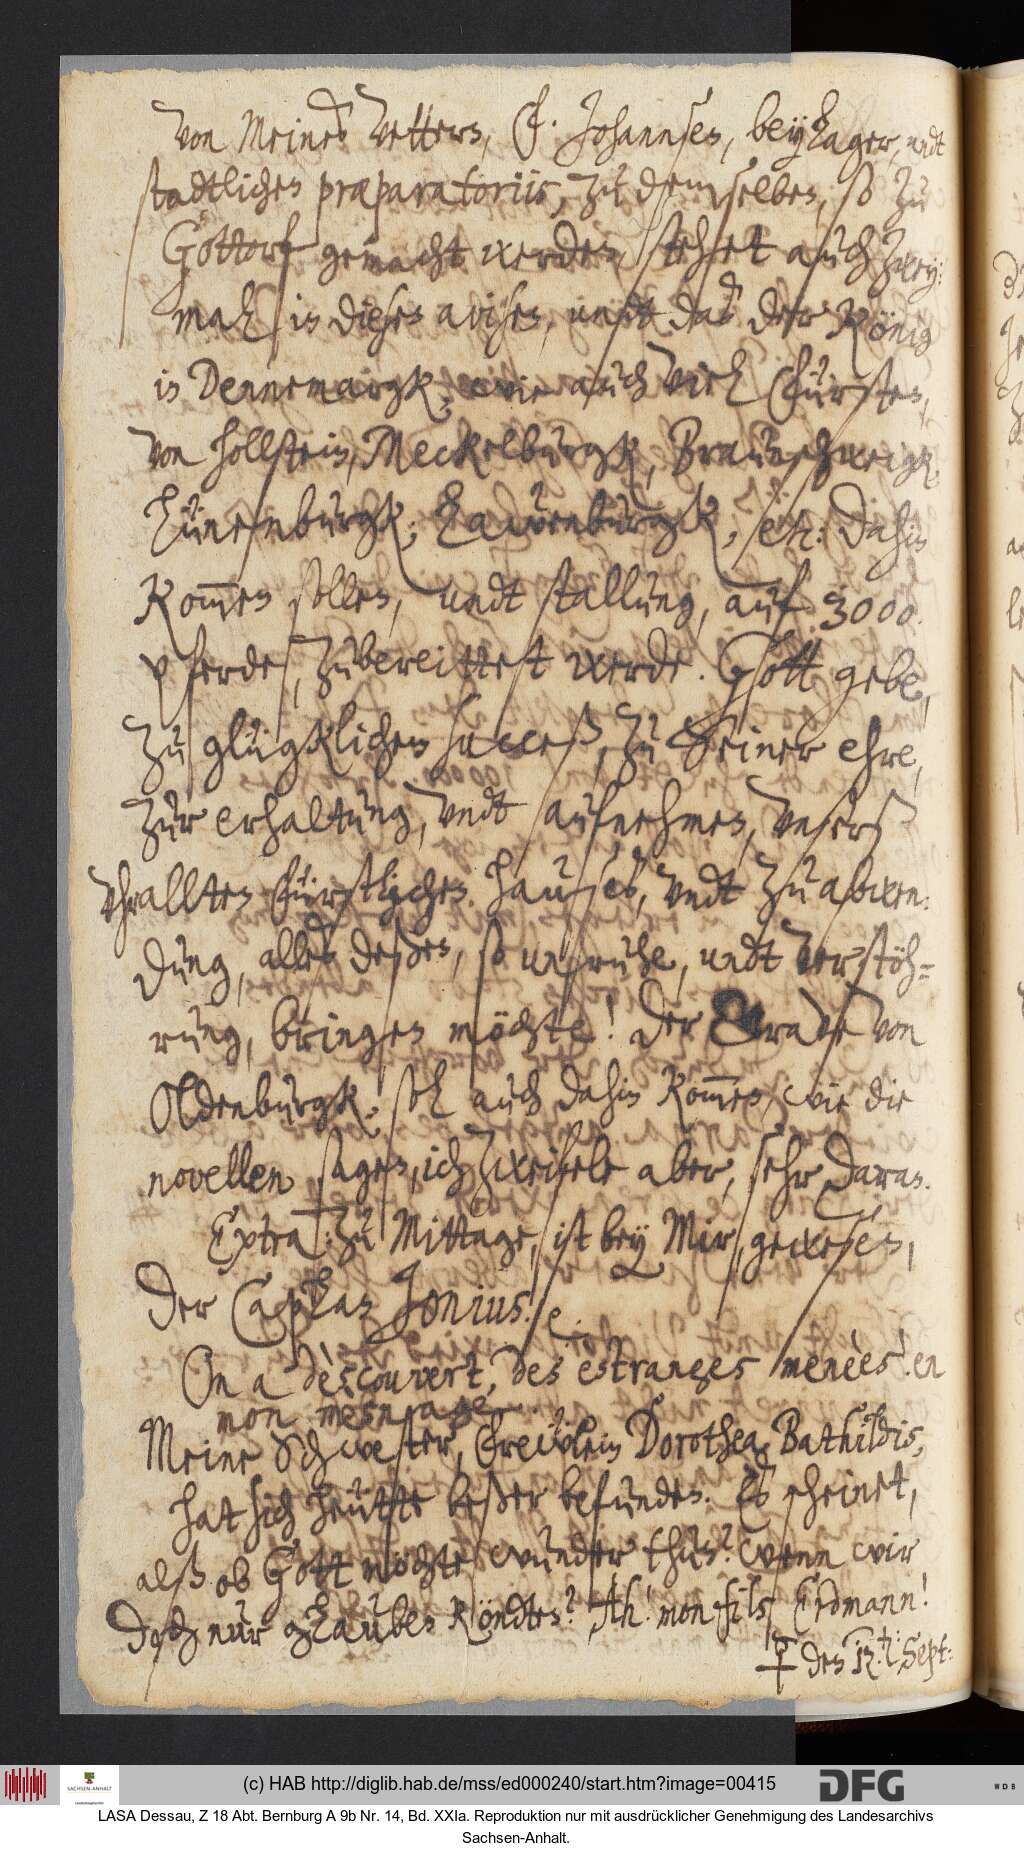 Von Meines Vetters, F. Johannsen, beylager, undt
stadtlichen præparatoriis, zu demselben, so zu
Gottorf gemacht werden, stehet auch zwey-
mal in diesen avisen, undt daß der König
in Dennemargk, wie auch viel Fürsten,
von Hollstein, Meckelburgk, Braunschweigk,
Lünenburgk, Lawenburgk, etc: dahin
kom̅en sollen, undt stallung, auf 3000.
pferde, zubereittet werde. Gott gebe,
zu glügklichen succeß, zu Seiner ehre,
zur erhaltung, undt aufnehmen, unserß
uhrallten Fürstlichen Hauses, undt zu abwen-
dung, alles deßen, so unruhe, undt verstöh-
rung, bringen möchte! Der Grave von
Oldenburgk, soll auch dahin kom̅en, wie die
novellen sagen, ich zweifele aber, sehr daran.
Extra: zu Mittage, ist bey Mir, gewesen,
der Caplan Jonius. e
On a dèscouvert, des èstranges menèes! en
mon mesnage.
Meine Schwester, Frewlein Dorothea Bathildis,
hat sich heütte beßer befunden. Es scheinet,
alß ob Gott möchte wunder thun? wenn wir
doch nur glauben köndten? Ah! mon fils Erdmann!
♀ den 12. Sept:
(c) HAB http://diglib.hab.de/mss/ed000240/start.htm?image=00415
SACHSEN-ANHALT
DFG
WDB
LASA Dessau, Z 18 Abt. Bernburg A 9b Nr. 14, Bd. XXIa. Reproduktion nur mit ausdrücklicher Genehmigung des Landesarchivs
Sachsen-Anhalt.